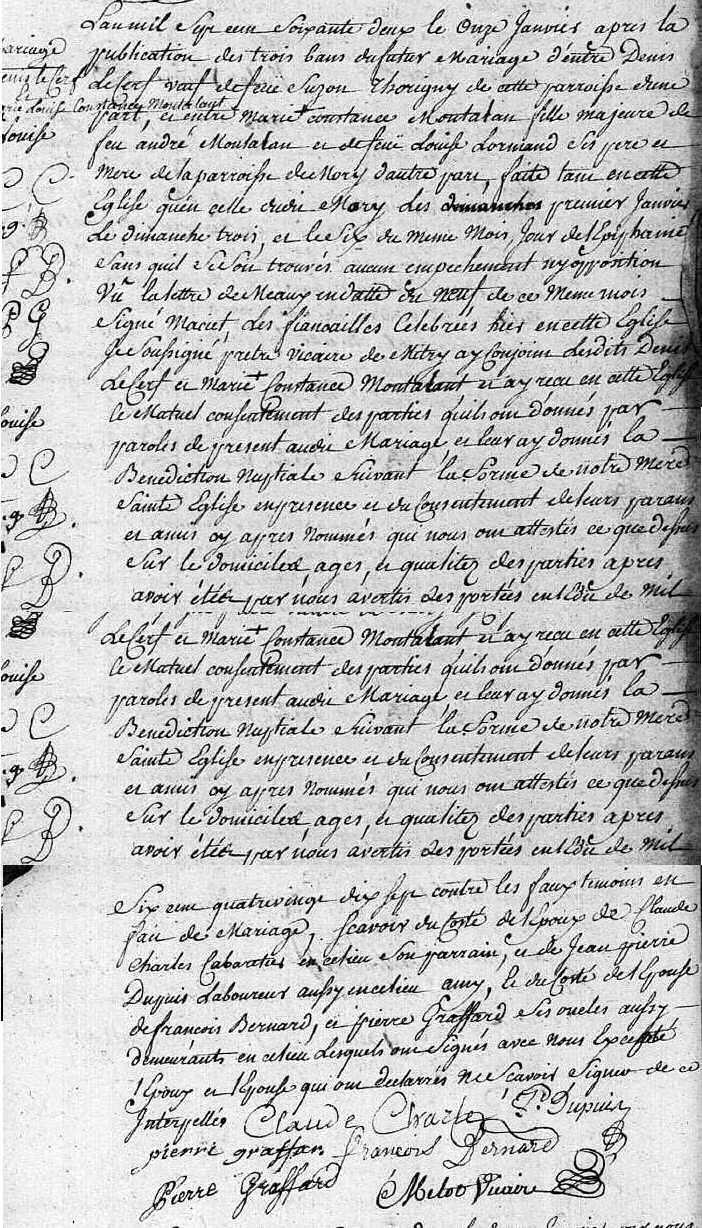 L'an mil Sept cent Soixante deux le Onze Janvier apres la
publication des trois bans du futur Mariage d'entre Denis
Mariage
Denis le Cerf
et
marie Louise Constance Montalant
Le Cerf veuf de feue Suzon Thorigny de cette parroisse d'une
part, et entre Marie + constance Montalan fille majeure de
Louise
feu andré Montalan et de feuë Louise Lormand Ses pere et
Mere de la parroisse de Mory d'autre part, faite tant en cette
Eglise qu'en celle dudit Mory les dimanches premier Janvier
Le dimanche trois, et le Six du Meme Mois, Jour de l'Epiphanie
Sans quil Se Soit trouvés aucun empechement ny opposition
Vû la lettre de Meaux en datte du Neuf de ce Meme mois
Signé Les fiancailles Celebreés hier en cette Eglise
Je Soussigné pretre vicaire de Mitry ay Conjoint lesdits Denis
Le Cerf et Marie + Constance Montalant et ay recu en cette Eglise
le Mutuel consentement des parties qu'ils ont donnés par
Louise
paroles de present audit Mariage et leur ay donnés la
Benediction Nuptiale Suivant la forme de notre Mere
Sainte Eglise en presence et du Consentement de leurs parans
et amis cy apres Nommés qui nous ont attestés ce que dessus
Sur le domicile ages, et qualitez des parties apres
avoir étée par nous avertis des portées en l'Edit de Mil
Le Cerf et Marie + Constance Montalant et ay recu en cette Eglise
le Mutuel consentement des parties qu'ils ont donnés par
Louise
paroles de present audit Mariage et leur ay donnés la
Benediction Nuptiale Suivant la forme de notre Mere
Sainte Eglise en presence et du Consentement de leurs parans
et amis cy apres Nommés qui nous ont attestés ce que dessus
Sur le domicile ages, et qualitez des parties apres
avoir étée par nous avertis des portées en l'Edit de Mil
Six cent quatrevingt dix Sept contre les faux temoins en
fait de Mariage, Scavoir du Costé de l'Epoux de Claude
Charles Cabaratier en ce lieu Son parrain, et de Jean pierre
Dupuis Laboureur aussy en ce lieu amy, et du Costé de l'Epouse
de francois Bernard, et pierre Graffard Ses oncles aussy
demeurants en ce lieu Lesquels ont Signés avec nous Excepté
l'Epoux et l'Epouse qui ont declarrés Ne Scavoir Signer de ce
Interpellés Claude Charle J.P. Dupuis
pierre graffar francois Bernard
Pierre Graffard Melot Vicaire